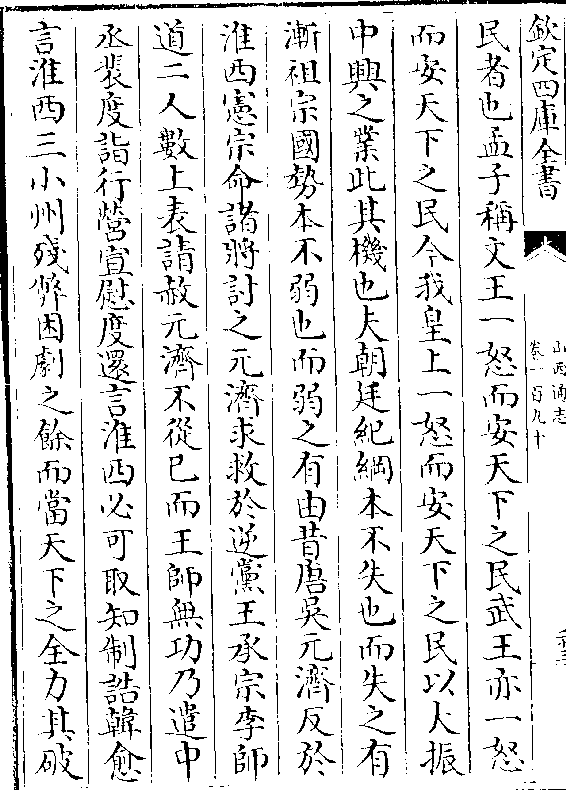 欽定四庫全書
山西通志
卷一百九十
民者也孟子稱文王一怒而安天下之民武王亦一怒
而安天下之民今我皇上一怒而安天下之民以大振
中興之業此其機也夫朝廷紀綱本不失也而失之有
漸祖宗國勢本不弱也而弱之有由昔唐吳元濟反於
淮西憲宗命諸將討之元濟求救於逆黨王承宗李師
道二人數上表請赦元濟不從已而王師無功乃遣中
丞裴度詣行營宣慰度還言淮西必可取知制誥韓愈
言淮西三小州殘弊困劇之餘而當天下之全力其破